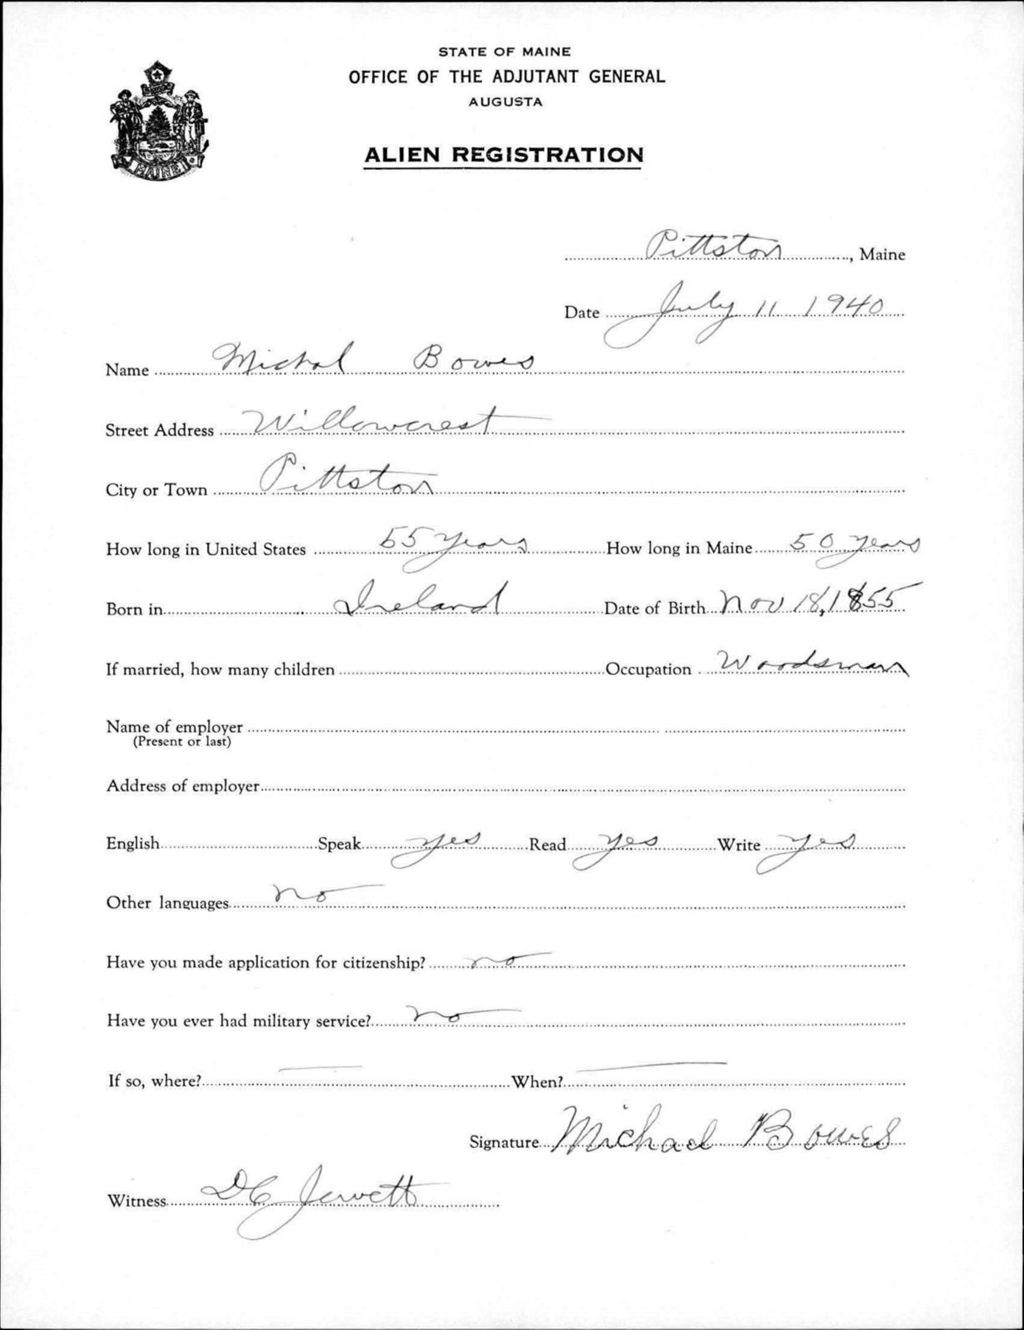 STATE OF MAINE
OFFICE OF THE ADJUTANT GENERAL
AUGUSTA
ALIEN REGISTRATION
MAINE
Pittston, Maine
Date July 11 1940
Name Michal Bowes
Street Address Willowcrest
City or Town Pittston
How long in United States 55 years How long in Maine 50 years
Born in Ireland Date of Birth Nov 18, 1855
If married, how many children Occupation Woodsman
Name of employer
(Present or last)
Address of employer
English Speak yes Read yes Write yes
Other languages no
Have you made application for citizenship? no
Have you ever had military service? no
If so, where? When?
Signature Michael Bowes
Witness DC Jewett